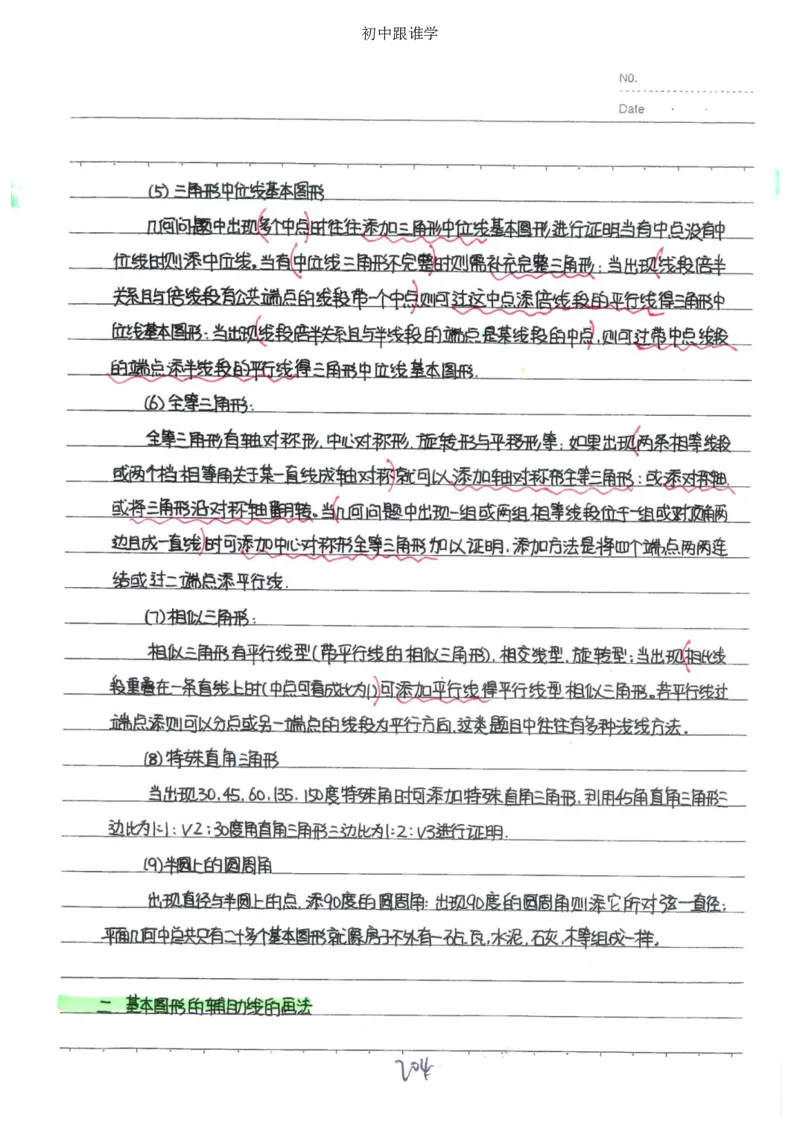 初中跟谁学
NO.
Date
(5)三角形中位线基本图形
几何问题中出现多个中点时往往添加三角形中位线基本图形进行证明当有中点没有中
位线时则添中位线。当有中位线三角形不完整时则需补充完整三角形；当出现线段倍半
关系且与倍线段有公共端点的线段带一个中点则可过这中点添倍线段的平行线得三角形中
位线基本图形；当出现线段倍半关系且与半线段的端点是某线段的中点，则可过带中点线段
的端点添半线段的平行线得三角形中位线基本图形.
(6)全等三角形：
全等三角形有轴对称形，中心对称形，旋转形与平移形等；如果出现两条相等线段
或两个档相等角关于某一直线成轴对称就可以添加轴对称形全等三角形：或添对称轴，
或将三角形沿对称轴翻转。当几何问题中出现一组或两组相等线段位于一组或对顶角两
边且成一直线时可添加中心对称形全等三角形加以证明，添加方法是将四个端点两两连
结或过二端点添平行线.
(7)相似三角形：
相似三角形有平行线型(带平行线的相似三角形)，相交线型，旋转型；当出现相比线
段重叠在一条直线上时(中点可看成比为1)可添加平行线得平行线型相似三角形。若平行线过
端点添则可以分点或另一端点的线段为平行方向，这类题目中往往有多种浅线方法。
(8)特殊直角三角形
当出现30，45，60，135，150度特殊角时可添加特殊直角三角形，利用45角直角三角形三
边比为1:1:√2；30度角直角三角形三边比为1:2:√3进行证明.
(9)半圆上的圆周角
出现直径与半圆上的点，添90度的圆周角；出现90度的圆周角则添它所对弦一直径；
平面几何中总共只有二十多个基本图形就像房子不外有一砧，瓦，水泥，石灰，木等组成一样。
二．基本图形的辅助线的画法
204